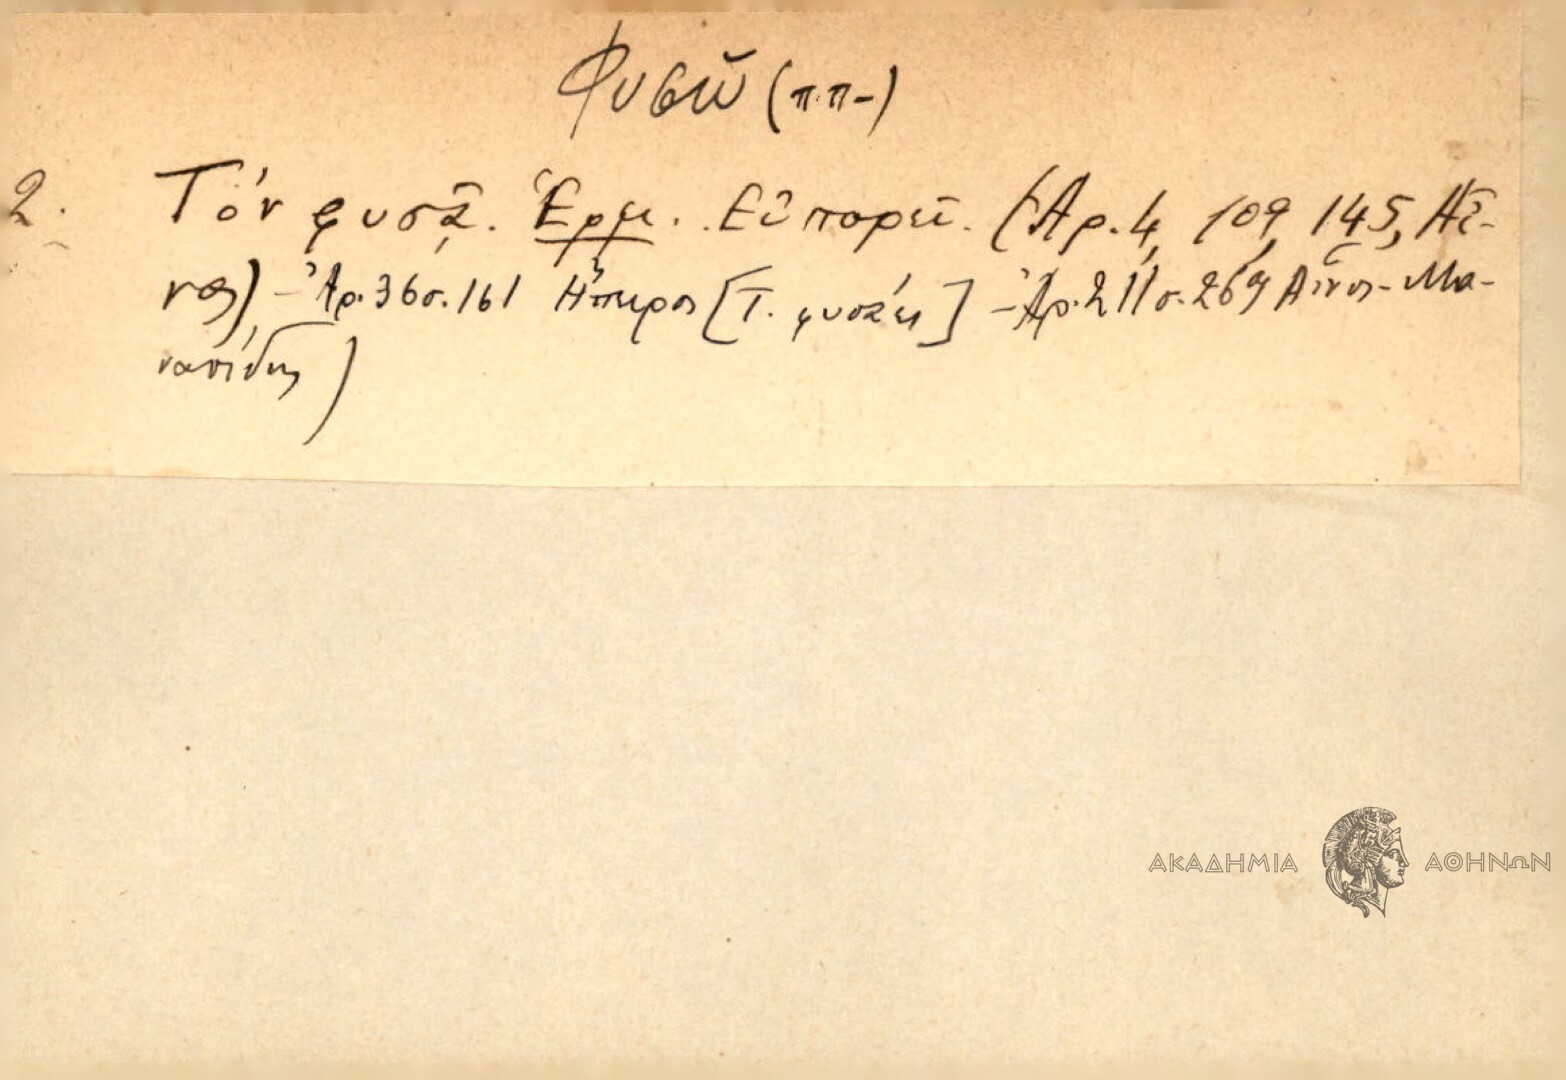 Φυσῶ (π.π-)
2. Τόν φυσᾷ. Ἑρμ. Εὐπορεῖ. (Ἀρ. 4, 109, 145, Αἶ-
νος) - Ἀρ. 36 σ. 161 Ἤπειρος [Τ. φυσάει] - Ἀρ. 211 σ. 269 Αἶνος - Μα-
ΑΚΑΔΗΜΙΑ ΑΘΗΝΩΝ